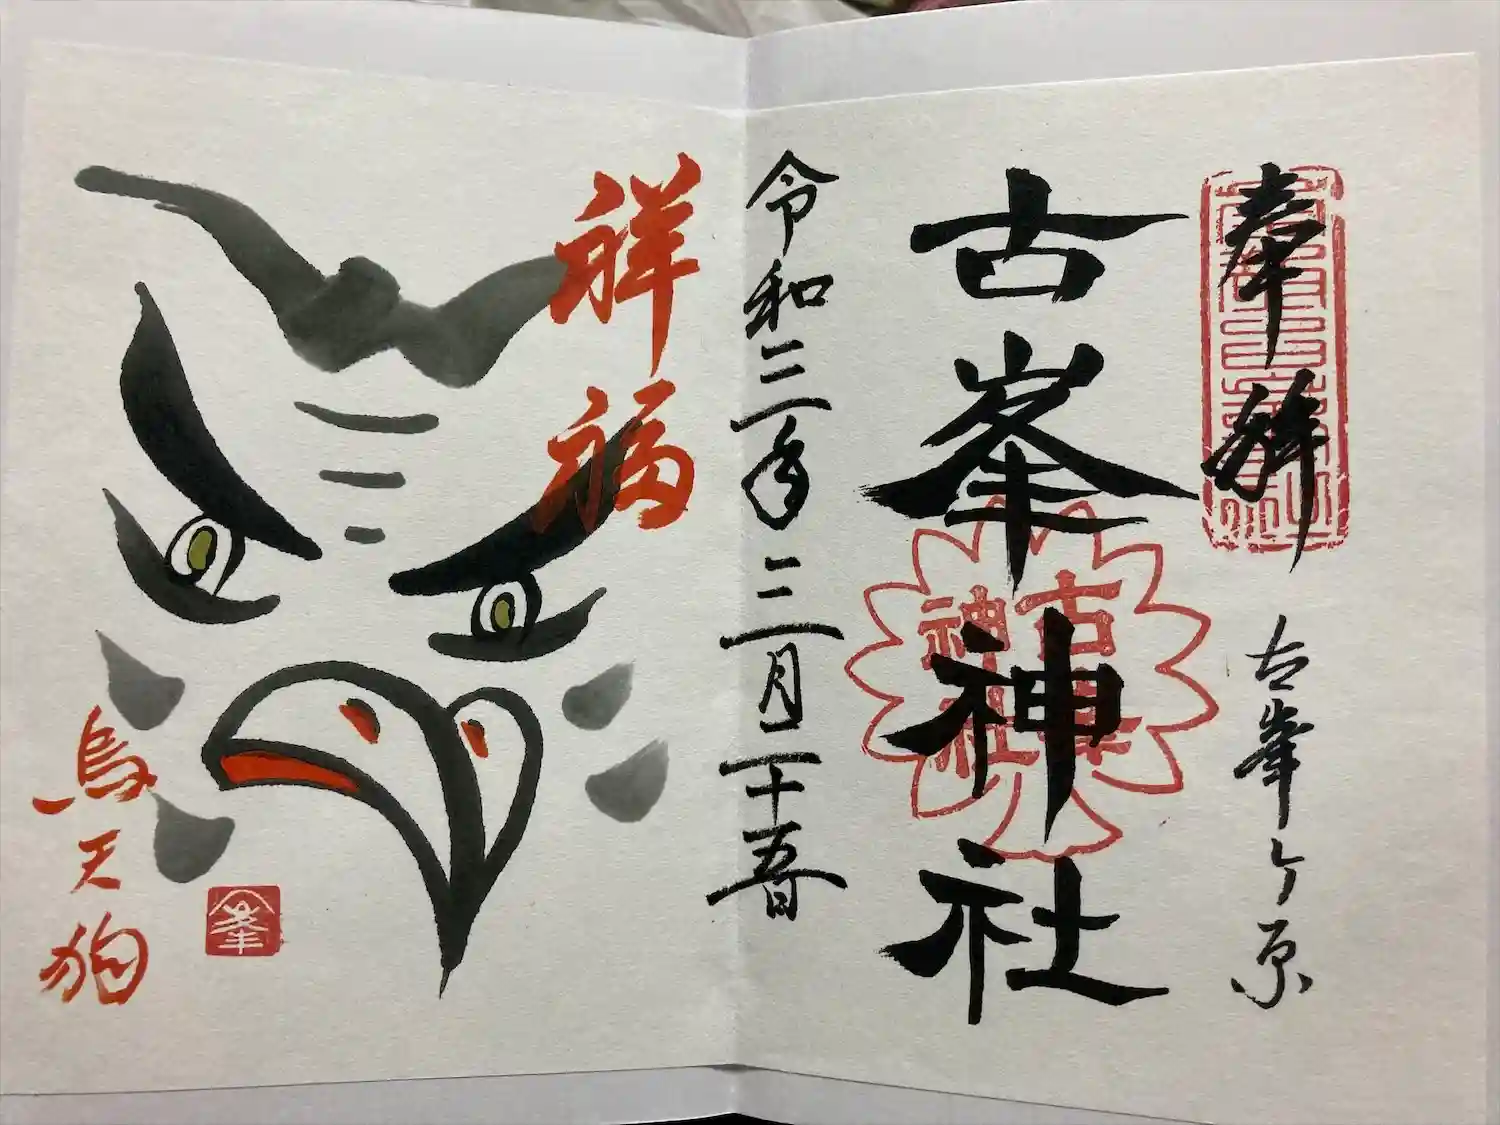 奉拝
古峯ヶ原
古峯神社
古峯
神社
令和三年三月二十五日
祥福
烏天狗
峯